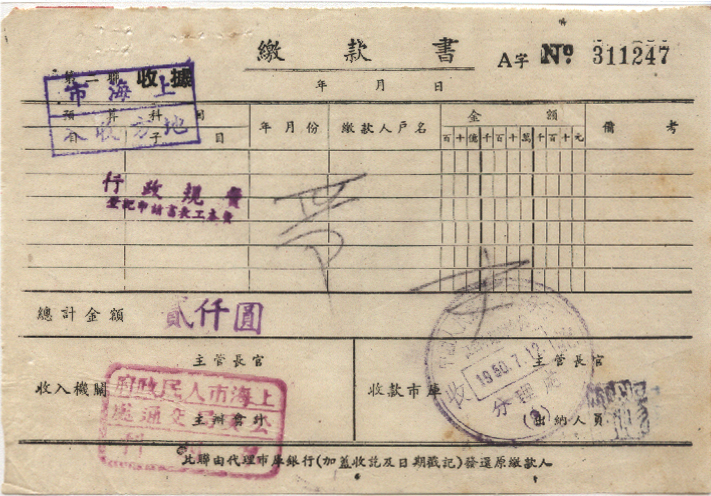 繳款書
A字 No 311247
收據
年 月 日
上海市
地方收入
預算科目
子目
年月份
繳款人戶名
金額
備考
百十億千百十萬千百十元
行政規費
登記申請書表工本費
總計金額
貳仟圓
主管長官
主管長官
收入機關
收款市庫
上海市人民政府
交通
主辦會計
1950.7.12
分理處
出納人員
此聯由代理市庫銀行(加蓋收訖及日期戳記)發還原繳款人